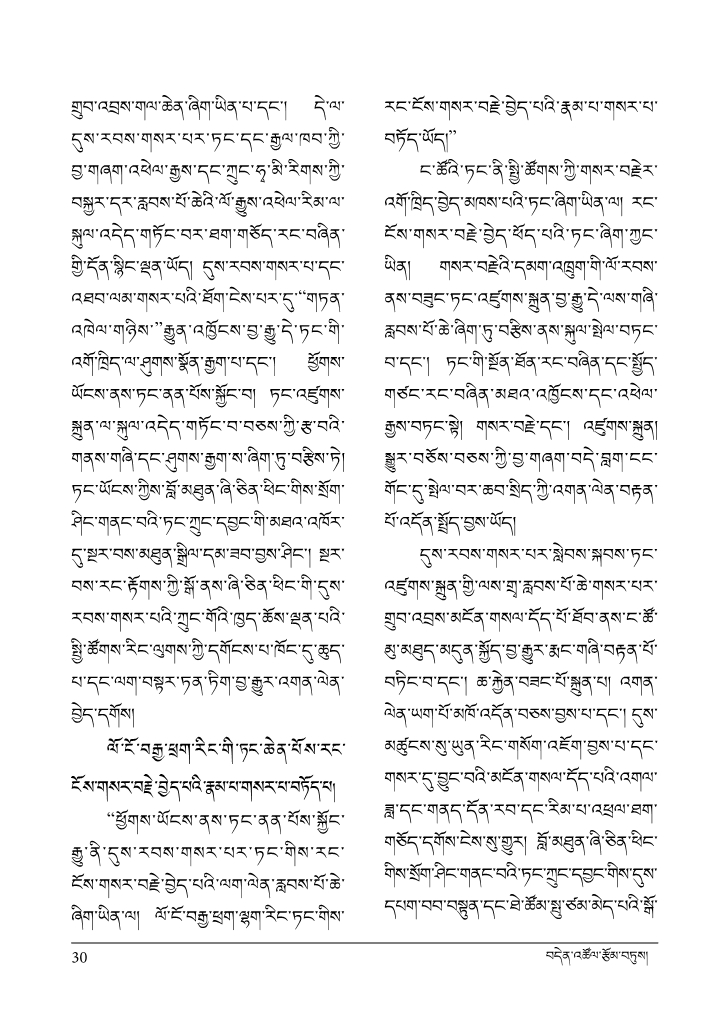 གྲུབ་འབྲས་གལ་ཆེན་ཞིག་ཡིན་པ་དང་། དེ་ལ་
དུས་རབས་གསར་པར་ཏང་དང་རྒྱལ་ཁབ་ཀྱི་
བྱ་གཞག་འཕེལ་རྒྱས་དང་ཀྲུང་ཧྭ་མི་རིགས་ཀྱི་
བསྐྱར་དར་རླབས་པོ་ཆེའི་ལོ་རྒྱུས་འཕེལ་རིམ་ལ་
སྐུལ་འདེད་གཏོང་བར་ཐག་གཅོད་རང་བཞིན་
གྱི་དོན་སྙིང་ལྡན་ཡོད། དུས་རབས་གསར་པ་དང་
འཐབ་ལམ་གསར་པའི་ཐོག་ངེས་པར་དུ་“གཏན་
འཁེལ་གཉིས་”རྒྱུན་འཁྱོངས་བྱ་རྒྱུ་དེ་ཏང་གི་
འགོ་ཁྲིད་ལ་ཤུགས་སྣོན་རྒྱག་པ་དང་། ཕྱོགས་
ཡོངས་ནས་ཏང་ནན་པོས་སྐྱོང་བ། ཏང་འཛུགས་
སྐྲུན་ལ་སྐུལ་འདེད་གཏོང་བ་བཅས་ཀྱི་རྩ་བའི་
གནས་གཞི་དང་ཤུགས་རྒྱག་ས་ཞིག་ཏུ་བརྩིས་ཏེ།
ཏང་ཡོངས་ཀྱིས་བློ་མཐུན་ཞི་ཅིན་ཕིང་གིས་སྲོག་
ཤིང་གནང་བའི་ཏང་ཀྲུང་དབྱང་གི་མཐའ་འཁོར་
དུ་སྔར་བས་མཐུན་སྒྲིལ་དམ་ཟབ་བྱས་ཤིང་། སྔར་
བས་རང་རྟོགས་ཀྱི་སྒོ་ནས་ཞི་ཅིན་ཕིང་གི་དུས་
རབས་གསར་པའི་ཀྲུང་གོའི་ཁྱད་ཆོས་ལྡན་པའི་
སྤྱི་ཚོགས་རིང་ལུགས་ཀྱི་དགོངས་པ་ཁོང་དུ་ཆུད་
པ་དང་ལག་བསྟར་ཏན་ཏིག་བྱ་རྒྱུར་འགན་ལེན་
བྱེད་དགོས།
ལོ་ངོ་བརྒྱ་ཕྲག་རིང་གི་ཏང་ཆེན་པོས་རང་
ངོས་གསར་བརྗེ་བྱེད་པའི་རྣམ་པ་གསར་པ་བཏོད་པ།
“ཕྱོགས་ཡོངས་ནས་ཏང་ནན་པོས་སྐྱོང་
རྒྱུ་ནི་དུས་རབས་གསར་པར་ཏང་གིས་རང་
ངོས་གསར་བརྗེ་བྱེད་པའི་ལག་ལེན་རླབས་པོ་ཆེ་
ཞིག་ཡིན་ལ། ལོ་ངོ་བརྒྱ་ཕྲག་ལྷག་རིང་ཏང་གིས་
རང་ངོས་གསར་བརྗེ་བྱེད་པའི་རྣམ་པ་གསར་པ་
བཏོད་ཡོད།”
ང་ཚོའི་ཏང་ནི་སྤྱི་ཚོགས་ཀྱི་གསར་བརྗེར་
འགོ་ཁྲིད་བྱེད་མཁས་པའི་ཏང་ཞིག་ཡིན་ལ། རང་
ངོས་གསར་བརྗེ་བྱེད་ཕོད་པའི་ཏང་ཞིག་ཀྱང་
ཡིན། གསར་བརྗེའི་དམག་འཁྲུག་གི་ལོ་རབས་
ནས་བཟུང་ཏང་འཛུགས་སྐྲུན་བྱ་རྒྱུ་དེ་ལས་གཞི་
རླབས་པོ་ཆེ་ཞིག་ཏུ་བརྩིས་ནས་སྐུལ་སྤེལ་བཏང་
བ་དང་། ཏང་གི་སྔོན་ཐོན་རང་བཞིན་དང་སྤྱོད་
གཙང་རང་བཞིན་མཐའ་འཁྱོངས་དང་འཕེལ་
རྒྱས་བཏང་སྟེ། གསར་བརྗེ་དང་། འཛུགས་སྐྲུན།
སྒྱུར་བཅོས་བཅས་ཀྱི་བྱ་གཞག་བདེ་བླག་ངང་
གོང་དུ་སྤེལ་བར་ཆབ་སྲིད་ཀྱི་འགན་ལེན་བརྟན་
པོ་འདོན་སྤྲོད་བྱས་ཡོད།
དུས་རབས་གསར་པར་སླེབས་སྐབས་ཏང་
འཛུགས་སྐྲུན་གྱི་ལས་གྲྭ་རླབས་པོ་ཆེ་གསར་པར་
གྲུབ་འབྲས་མངོན་གསལ་དོད་པོ་ཐོབ་ནས་ང་ཚོ་
མུ་མཐུད་མདུན་སྐྱོད་བྱ་རྒྱུར་རྨང་གཞི་བརྟན་པོ་
བཏིང་བ་དང་། ཆ་རྐྱེན་བཟང་པོ་སྐྲུན་པ། འགན་
ལེན་ཡག་པོ་མཁོ་འདོན་བཅས་བྱས་པ་དང་། དུས་
མཚུངས་སུ་ཡུན་རིང་གསོག་འཇོག་བྱས་པ་དང་
གསར་དུ་བྱུང་བའི་མངོན་གསལ་དོད་པའི་འགལ་
ཟླ་དང་གནད་དོན་རབ་དང་རིམ་པ་འཕྲལ་ཐག་
གཅོད་དགོས་ངེས་སུ་གྱུར། བློ་མཐུན་ཞི་ཅིན་ཕིང་
གིས་སྲོག་ཤིང་གནང་བའི་ཏང་ཀྲུང་དབྱང་གིས་དུས་
དཔག་བབ་བསྟུན་དང་ཐེ་ཚོམ་སྤུ་ཙམ་མེད་པའི་སྒོ་
30
བདེན་འཚོལ་རྩོམ་བཏུས།